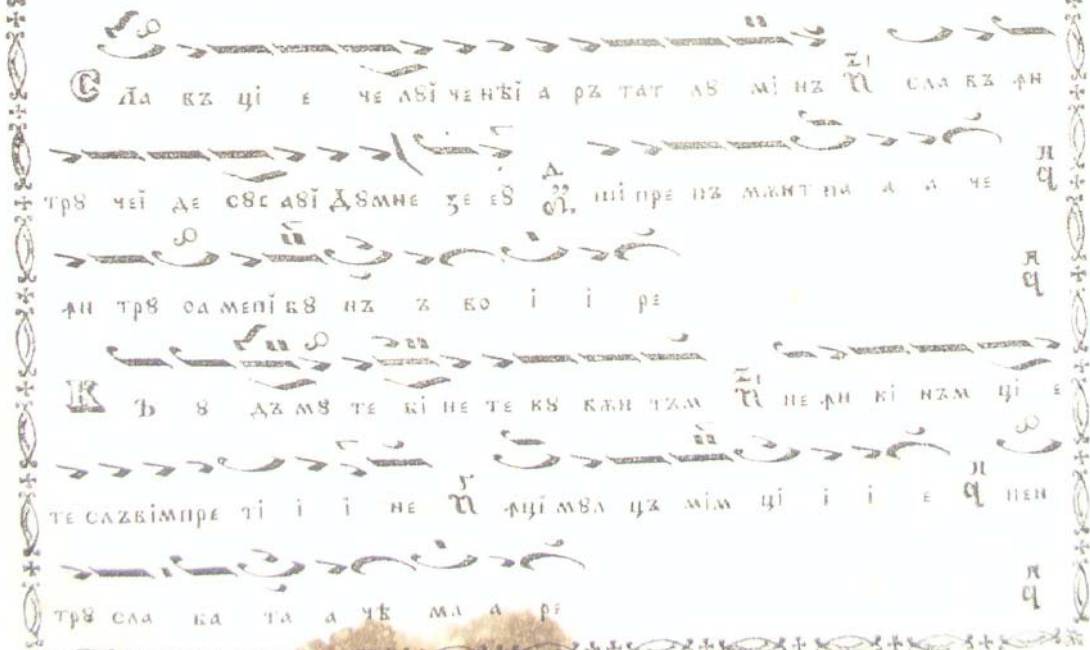 Сла въ ці е че лȣї ченѣї а ръ тат лȣ мі нъ сла въ ꙟн
трȣ чеї де сȣс лȣї Дȣмне зе ȣ ші пре пъ мѫнт па а а че
ꙟн трȣ оа мені бȣ нъ ъ во і і ре
Къ ȣ дъ мȣ те бі не те кȣ вѫн тъм не ꙟн кі нъм ці е
те слъвімпре ті і і не ꙟці мȣл цъ мім ці і і е пен
трȣ сла ва та а чѣ ма а ре